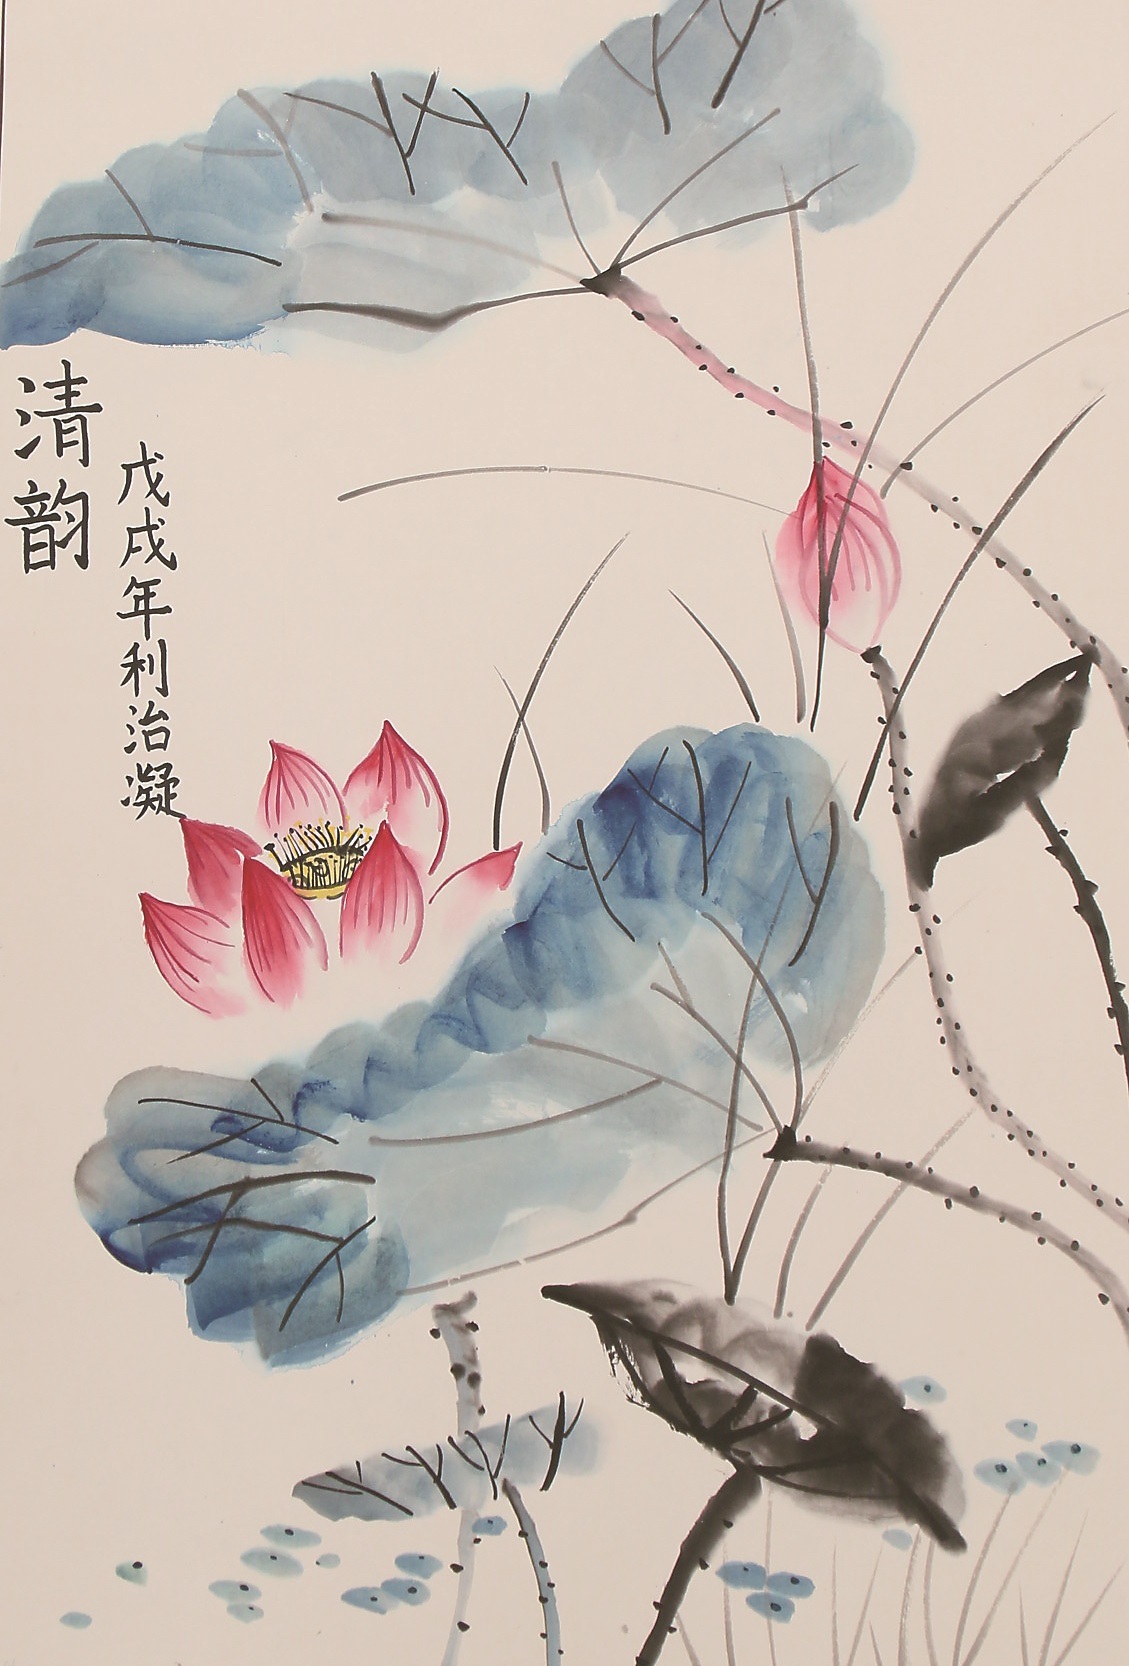 清韵
戊戌年利治凝